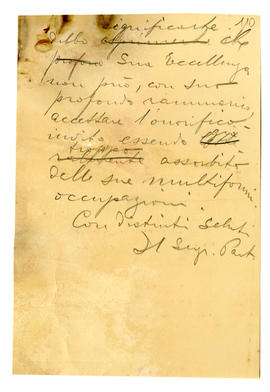 significarle 110
debbo che
Sua Eccellenza
non può, con suo
profondo rammarico,
accettare l'onorifico
invito essendo
troppo
assorbito
dalle sue multiformi
occupazioni.
Con distinti saluti
Il Segr. Part.